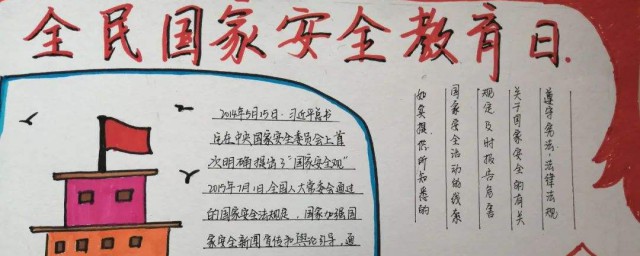 全民国家安全教育日.
2014年5月25日.习近平总书
记在中央国家安全委员会上首
次明确提出了“国家安全观”
2015年7月1日,全国人大常委会通过
的国家安全法规定，国家加强国
家安全新闻宣传和舆论引导，通
遵守宪法、法律法规
关于国家安全的有关
规定及时报告危害
国家安全活动的线索
如实提供所知悉的